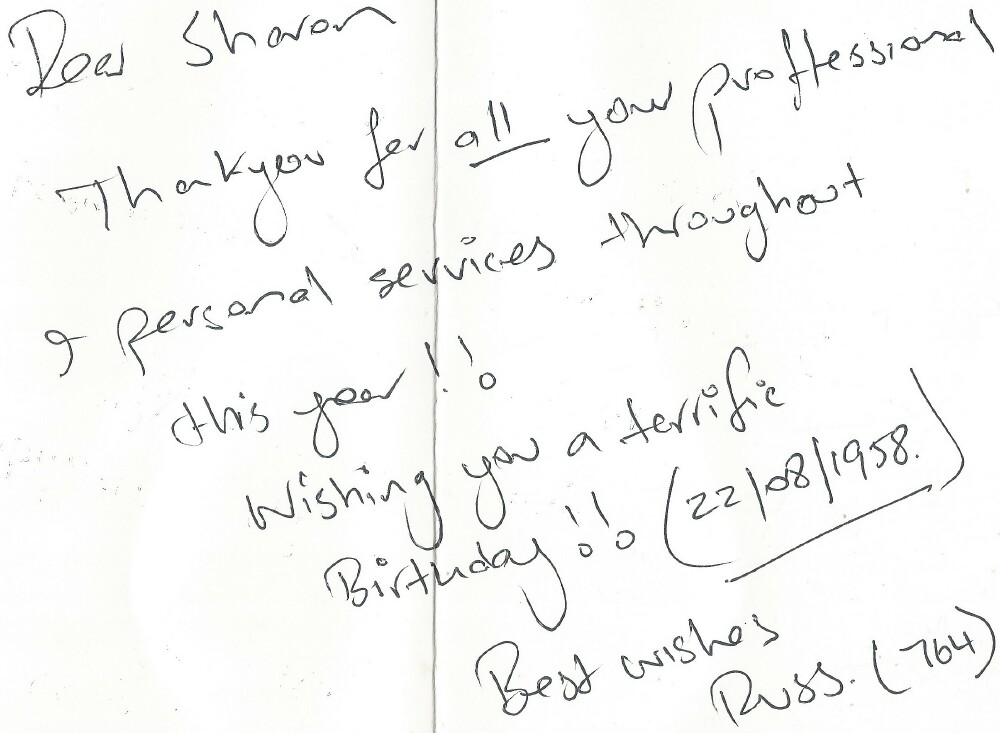 Dear Sharon
Thankyou for all your proffessional
& personal services throughout
this year!!
Wishing you a terrific
Birthday!! (22/08/1958.)
Best wishes
Russ. (764)